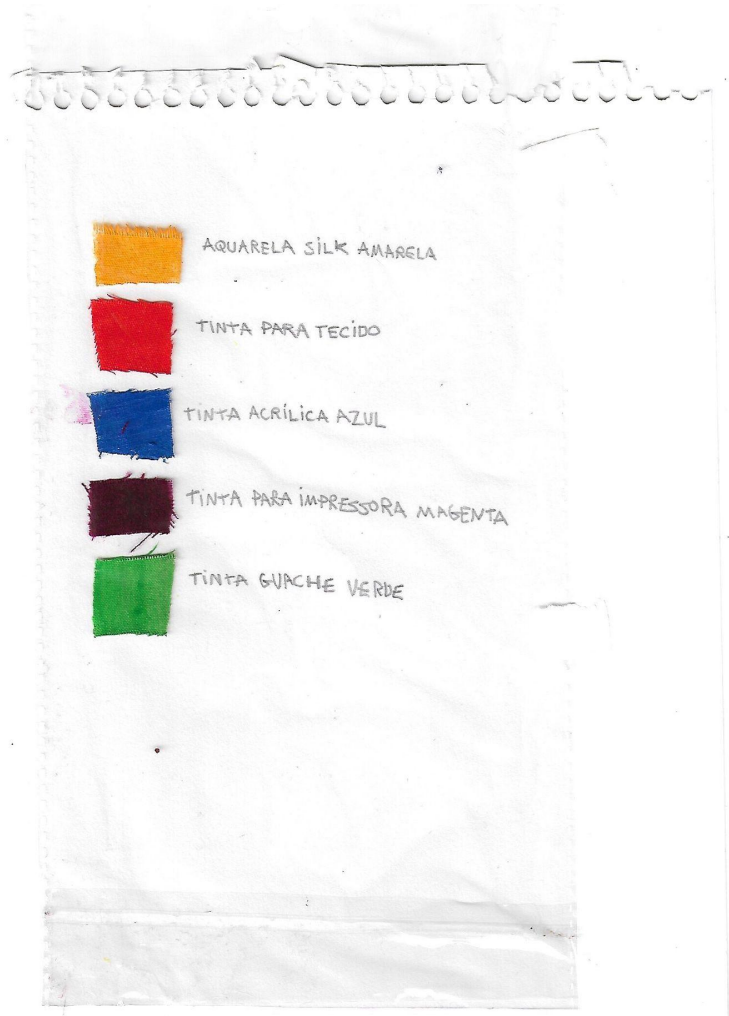 AQUARELA SILK AMARELA
TINTA PARA TECIDO
TINTA ACRÍLICA AZUL
TINTA PARA IMPRESSORA MAGENTA
TINTA GUACHE VERDE